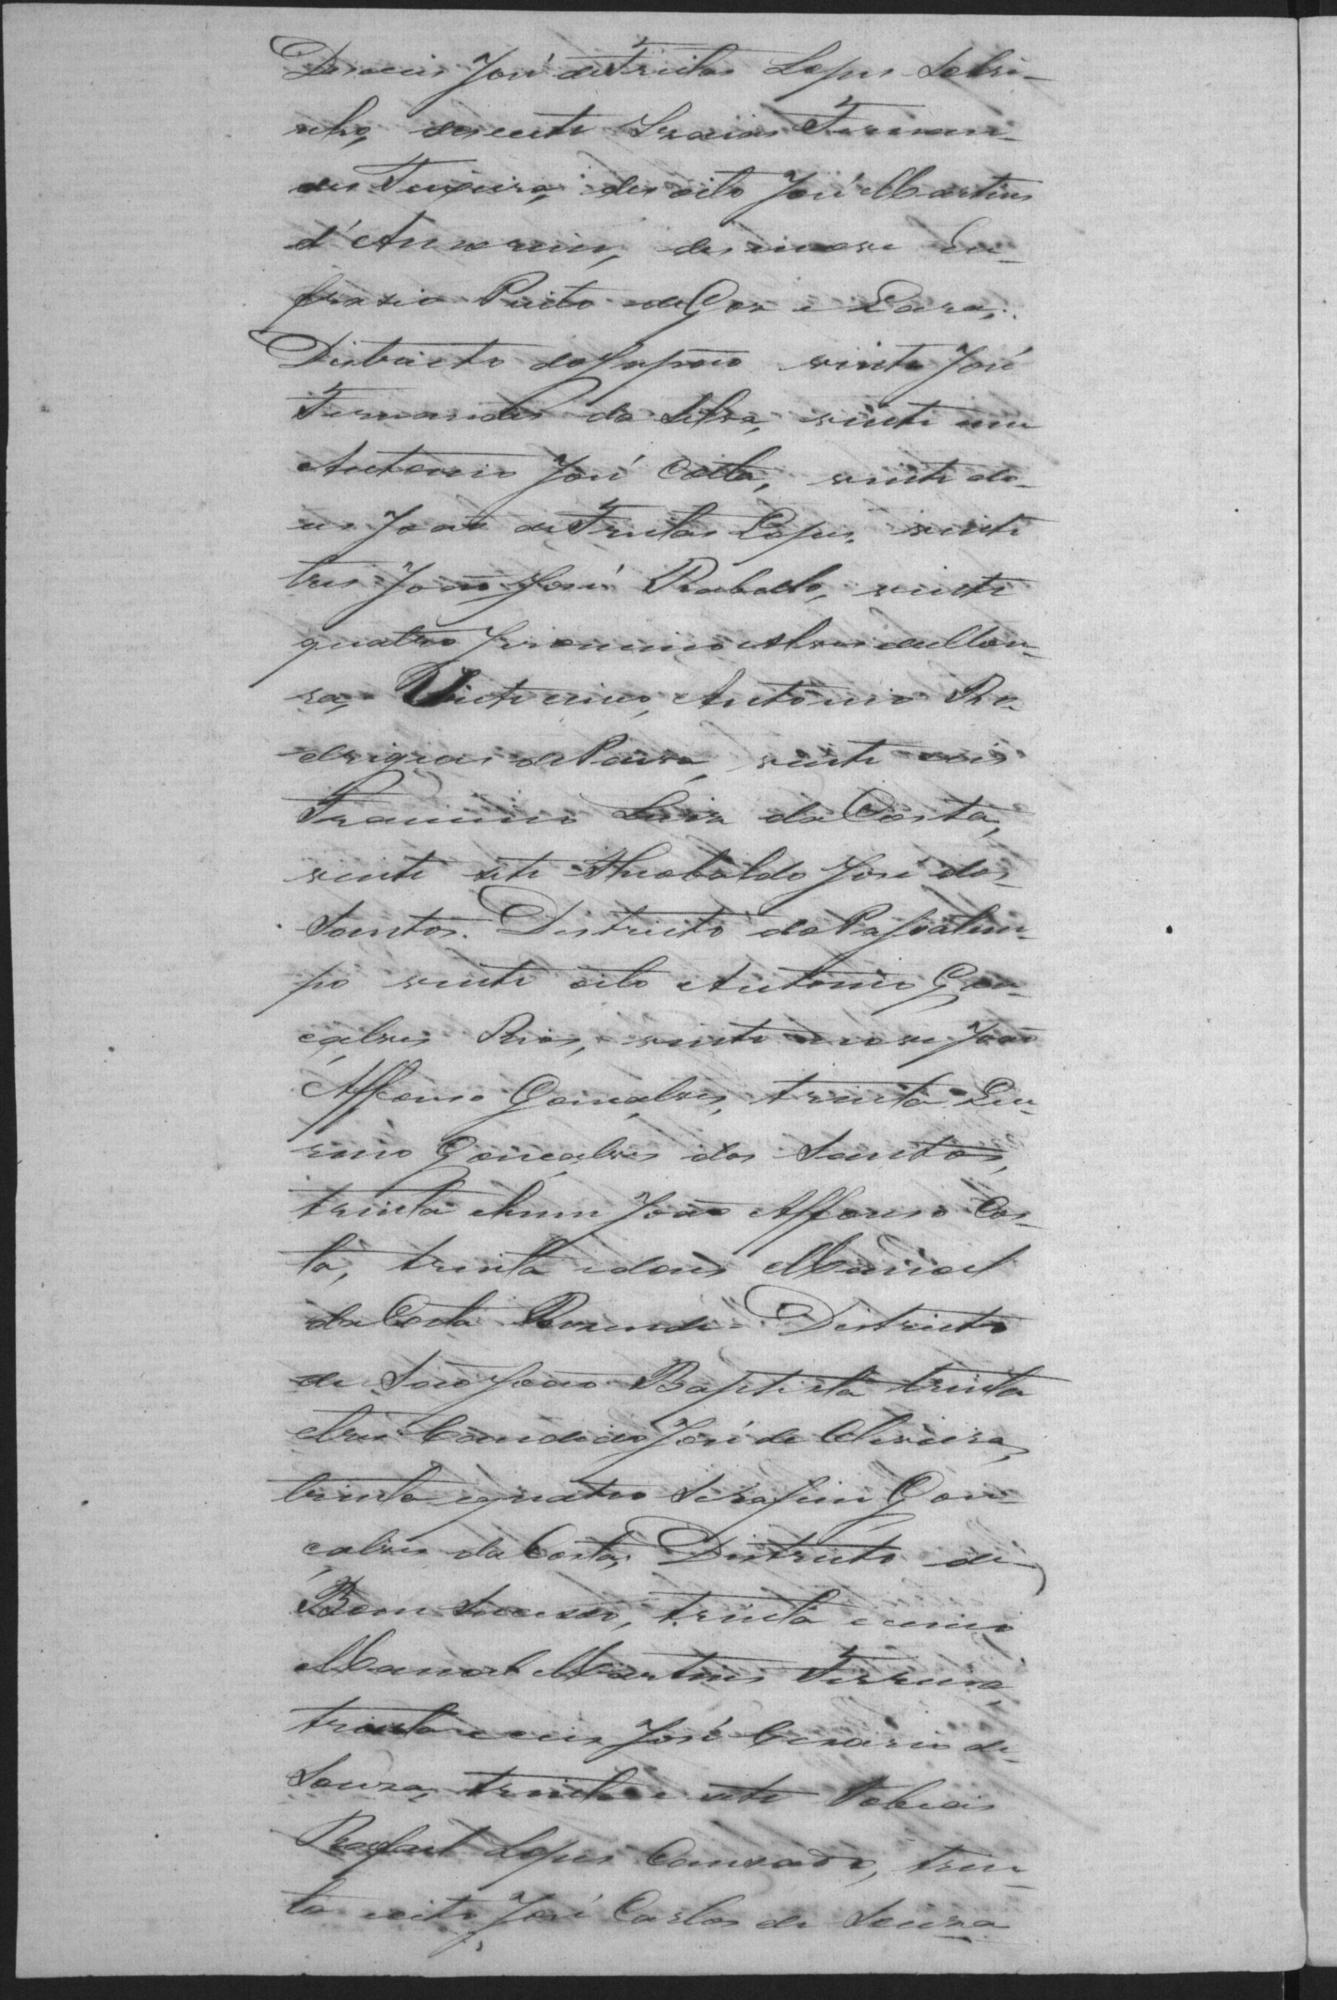 Deseceis José de Freitas Lopes Sobri-
nho, desecete Isaias Fernan-
des Teixeira, des oito José Martins
d'Amorim, desenove Eu-
frasio Pinto de Goes e Lara,
Districto do Japão vinte José
Fernandes da Silva, vinte um
Antonio José Cotta, vinte do-
us João de Freitas Lopes, vinte
tres João José Rabello, vinte
quatro Jeronimo Alves de Mou-
ra, Vinte cinco, Antonio Ro-
drigues de Paiva, vinte seis
Francisco Luiz da Costa,
vinte sete Theobaldo José dos
Santos. Districto do Passatem-
po vinte oito Antonio Gon-
çalves Rios, vinte nove João
Affonso Gonçalves, trinta
Gonçalves dos Santos,
trinta ehum João Affonso Cos-
ta, trinta edous Manoel
da Costa Rezende Districto
de São João Baptista trinta
etres Candido José de Oliveira,
trinta equatro Serafim Gon-
çalves da Costa, Districto de
Bom Sucesso, trinta ecinco
Manoel Martins Ferreira,
trinta eseis José Cesario de
Souza, trinta e sete Tobias
Rafael Lopes Cançado, trin-
ta eoito José Carlos de Souza